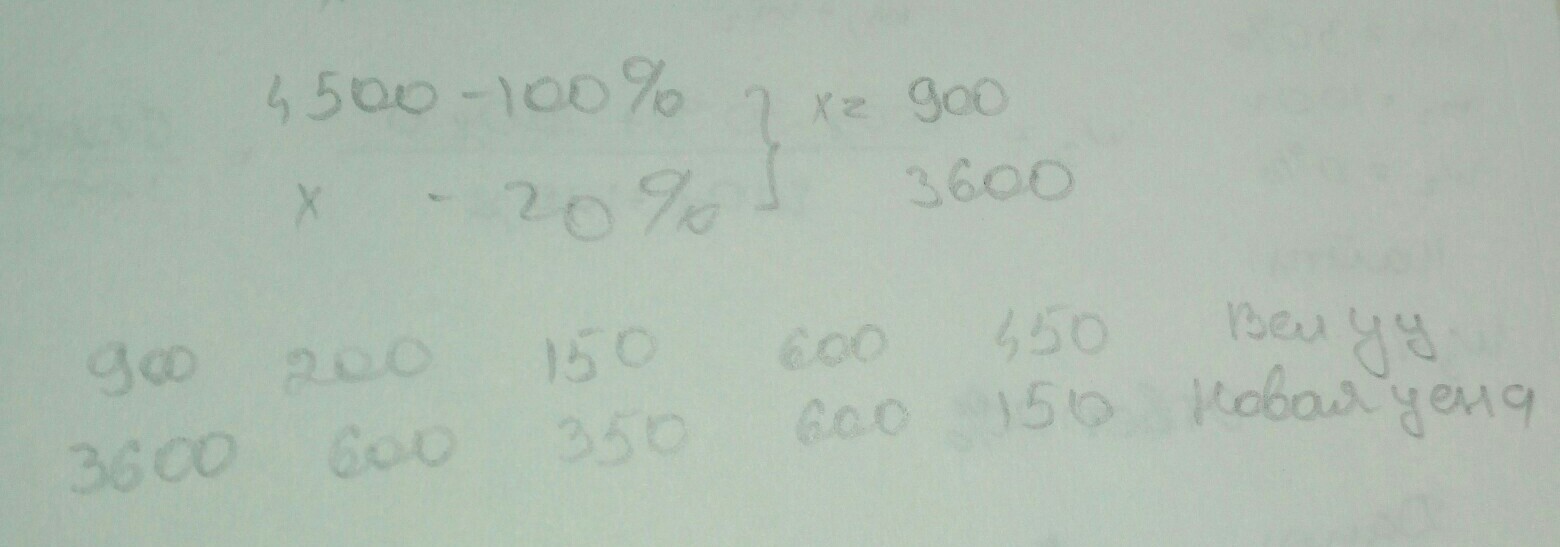 4500 - 100% } x = 900
x - 20% } 3600
900 200 150 600 450 Вел уц
3600 600 350 600 150 Новая цена